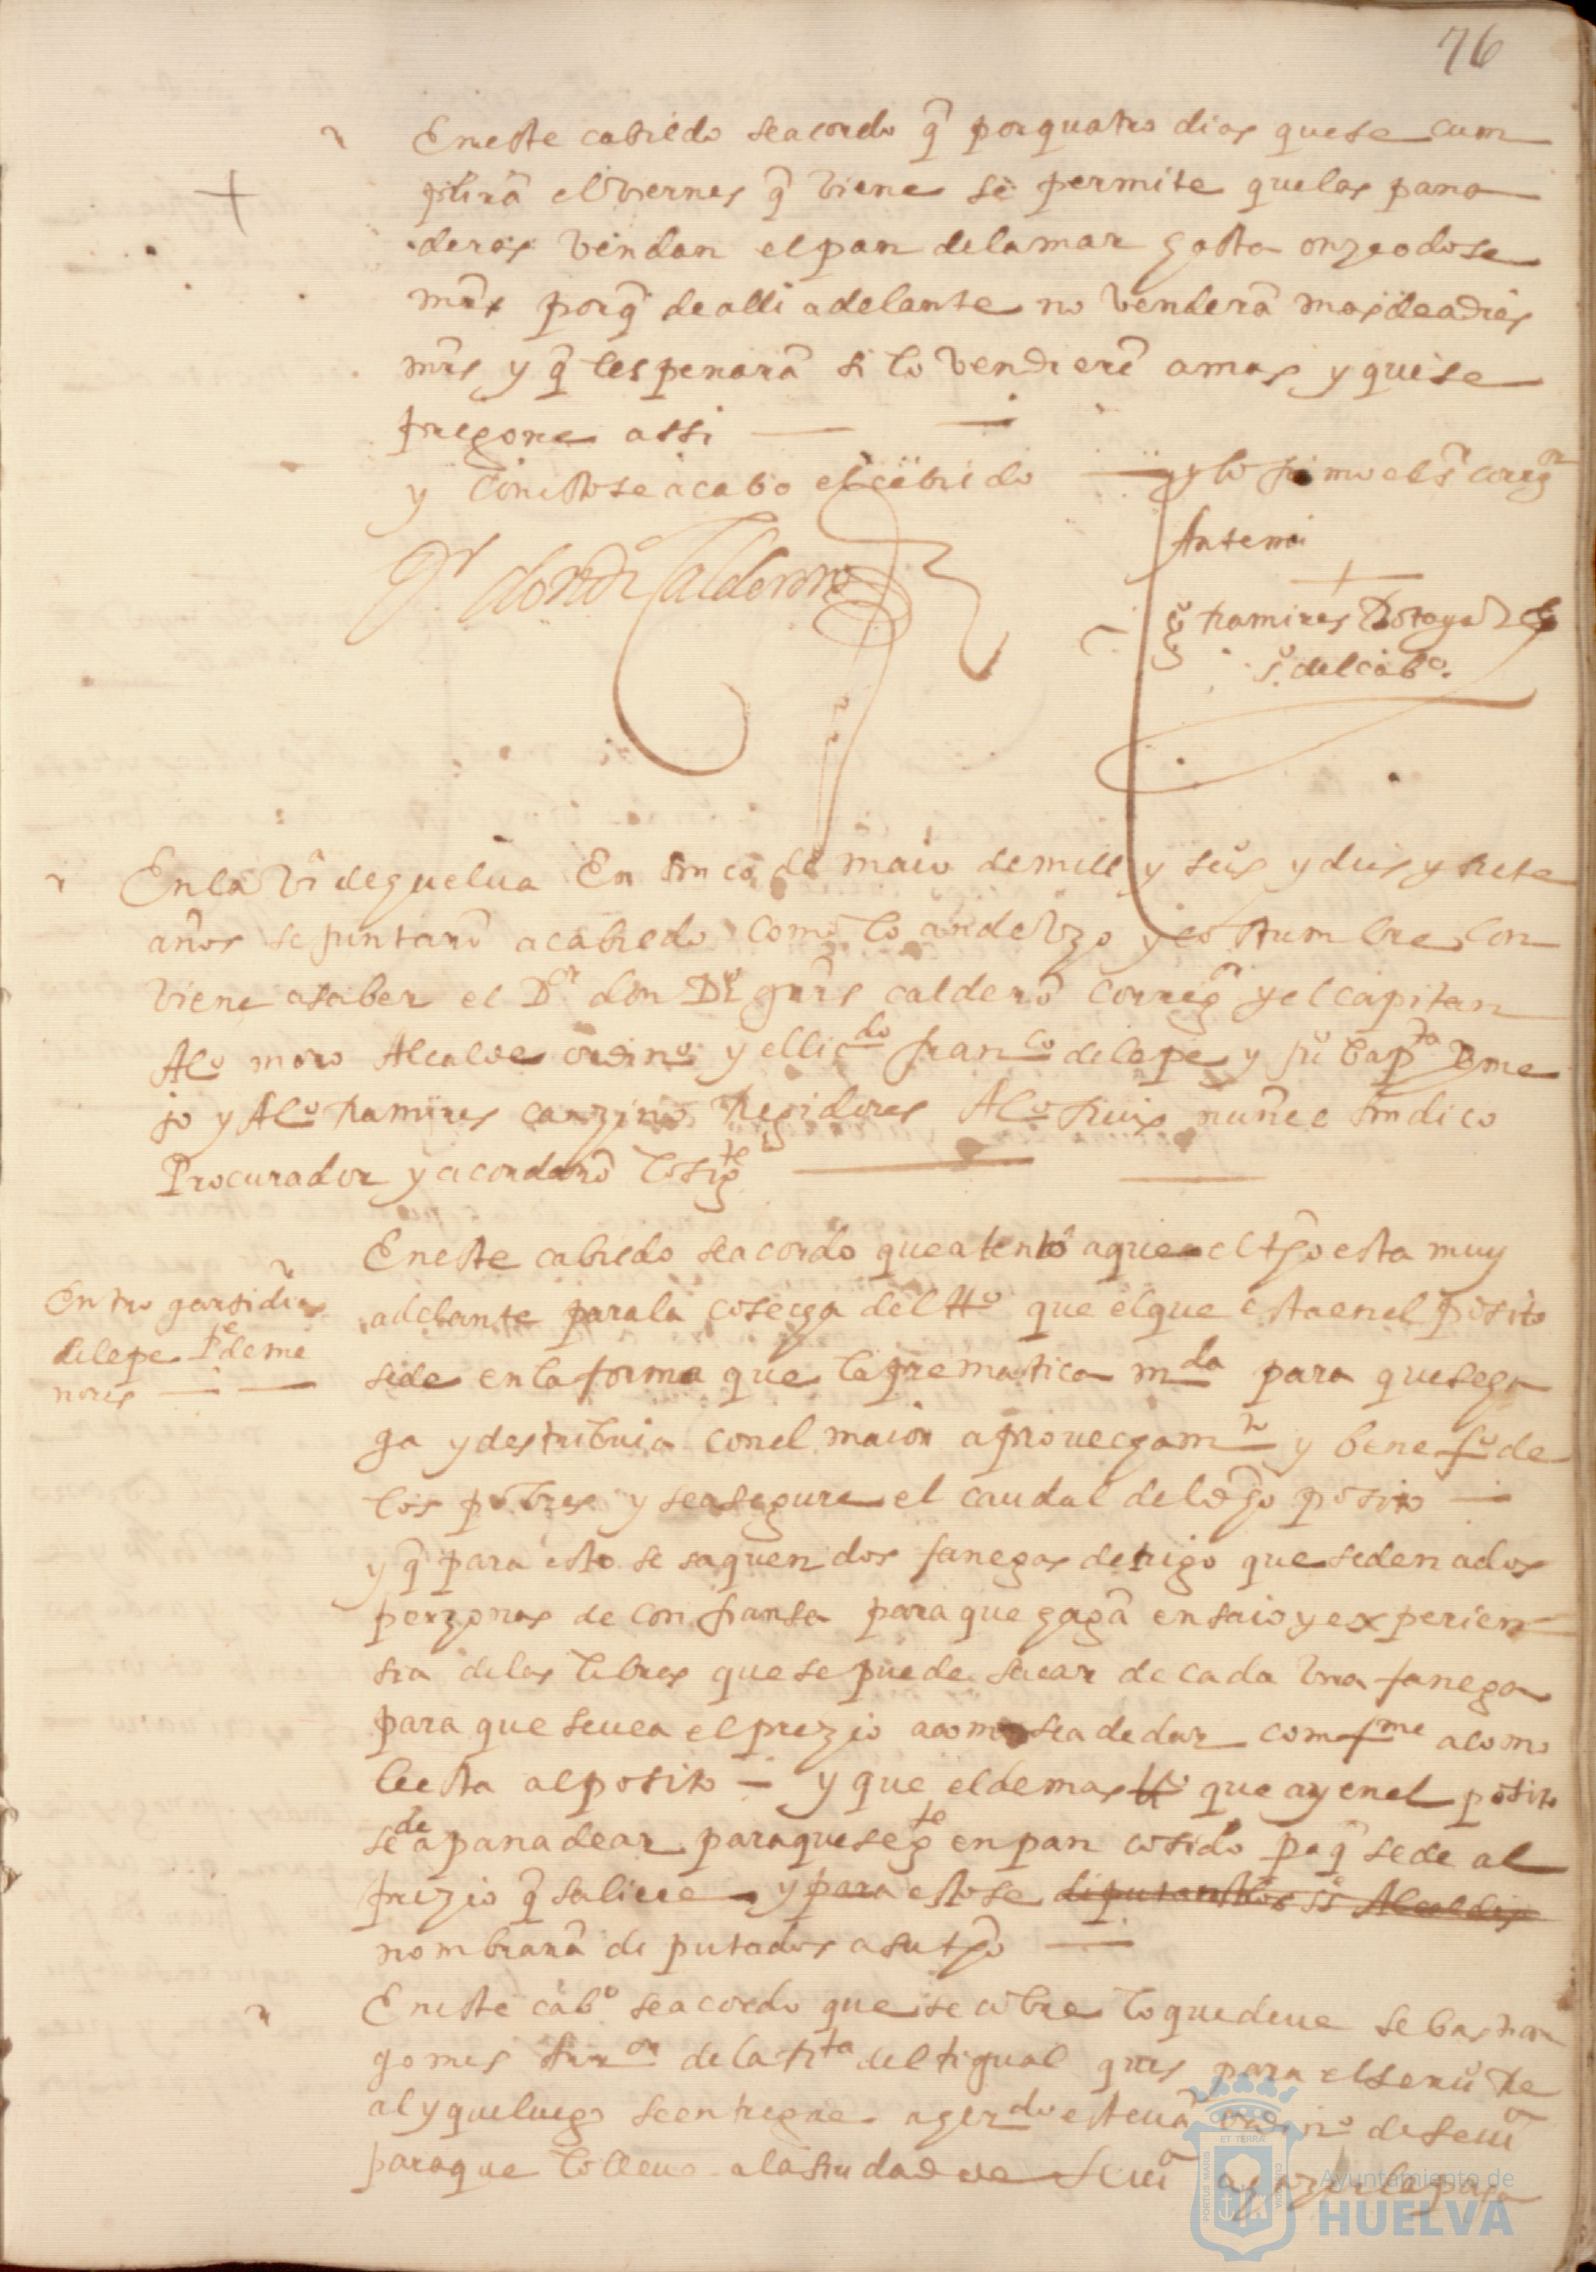 76
En este cabildo se acordo q̃ por quatro dias que se cum
plirã el viernes q̃ viene se permite que las pana
deras vendan el pan de la mar hasta onze o dose
mrs̃ porq̃ de alli adelante no venderã mas de a dies
mrs̃ y q̃ les penarã si lo vendierẽ a mas y que se
pregone assi
y con esto se acabo el cabildo y lo firmo el sr corregr
Ante mi
Dr don Do Calderon
Ramires
so del cabo.
En la va de guelua En sinco de maio de mill y seiso y dies y siete
años se juntarõ a cabildo como lo an de vzo y costumbre con
viene a saber el Dor don Do calderõ corregor y el capitan
Alo moro Alcalde ordino y el licdo franco de lepe y juo bapta
jo y Alo Ramires regidores Alo Ruis nuñes sindico
Procurador y acordarõ lo sigte
En este cabildo se acordo que atento a que el tpõ esta muy
adelante para la cosecga del tto que el que esta en el posito
se de en la forma que la prematica mda para que se ga
ga y destribuia con el maior aprouecgamto y benefo de
los pobres y se asegure el caudal del dgõ posito
y q̃ para esto se saquen dos fanegas de trigo que se den a dos
perzonas de confiansa para que gagã ensaio y experien
sia de las libras que se puede sacar de cada vna fanega
para que se uea el prezio a como sea de dar comfme a como
le esta al posito y que el demas tto que ay en el posito
se de a panadear para que se gte en pan cosido pa q̃ se de al
prezio q̃ saliere y para esto se diputan los ss Alcaldes
nombrarã diputados a su tpõ
Entro garsi dias
de lepe Pe de me
nores
En este cabo se acordo que se cobre lo que deue sebastian
gomes de la rta del para el serui Re
al y que luego se entregue a gerdo esteuã vesino de seuia
para que lo lleue a la siudad de Seuia a gazer la paga
Ayuntamiento de
HUELVA
PORTUS MARIS
ET TERRÆ
CUSTODIA